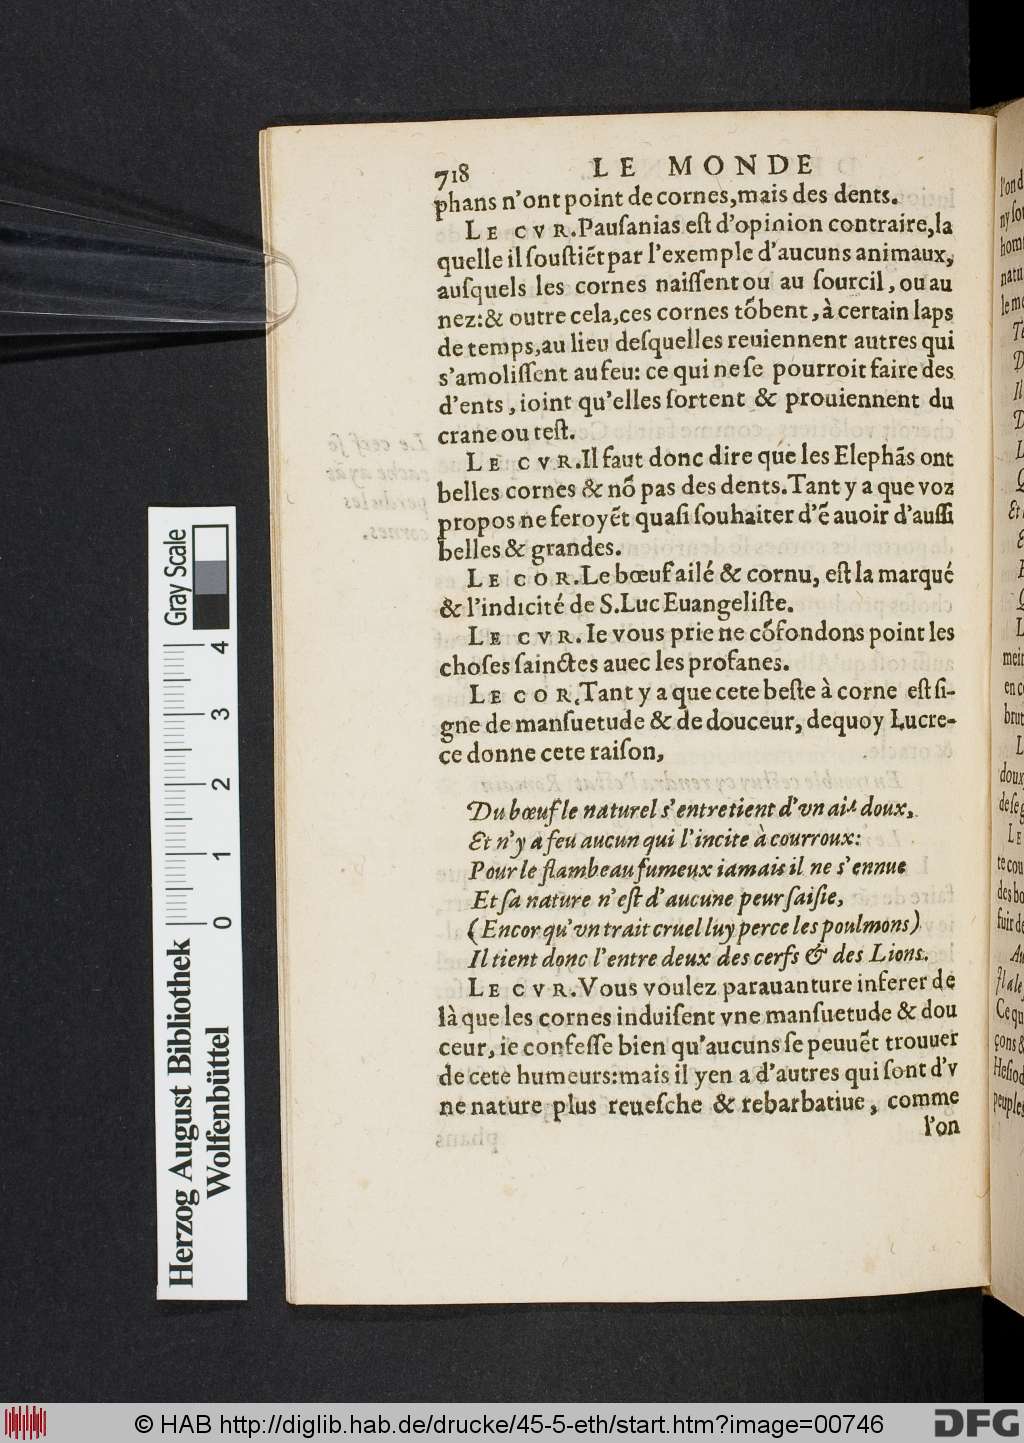 718 LE MONDE
phans n'ont point de cornes, mais des dents.
LE CVR. Pauſanias eſt d'opinion contraire, la
quelle il ſouſtiẽt par l'exemple d'aucuns animaux,
auſquels les cornes naiſſent ou au ſourcil, ou au
nez: & outre cela, ces cornes tõbent, à certain laps
de temps, au lieu deſquelles reuiennent autres qui
s'amoliſſent au feu: ce qui ne ſe pourroit faire des
d'ents, ioint qu'elles ſortent & prouiennent du
crane ou teſt.
LE CVR. Il faut donc dire que les Elephãs ont
belles cornes & nõ pas des dents. Tant y a que voz
propos ne feroyẽt quaſi ſouhaiter d'ẽ auoir d'auſſi
belles & grandes.
LE COR. Le bœuf ailé & cornu, eſt la marqué
& l'indicité de S. Luc Euangeliſte.
LE CVR. Ie vous prie ne cõfondons point les
choſes ſainctes auec les profanes.
LE COR. Tant y a que cete beſte à corne eſt ſi-
gne de manſuetude & de douceur, dequoy Lucre-
ce donne cete raiſon,
Du bœuf le naturel s'entretient d'vn air doux,
Et n'y a feu aucun qui l'incite à courroux:
Pour le flambeau fumeux iamais il ne s'ennue
Et ſa nature n'eſt d'aucune peur ſaiſie,
(Encor qu'vn trait cruel luy perce les poulmons)
Il tient donc l'entre deux des cerfs & des Lions.
LE CVR. Vous voulez parauanture inferer de
là que les cornes induiſent vne manſuetude & dou
ceur, ie confeſſe bien qu'aucuns ſe peuuẽt trouuer
de cete humeurs: mais il y en a d'autres qui ſont d'v
ne nature plus reueſche & rebarbatiue, comme
l'on
Gray Scale
0 1 2 3 4
Herzog August Bibliothek
Wolfenbüttel
© HAB http://diglib.hab.de/drucke/45-5-eth/start.htm?image=00746
DFG